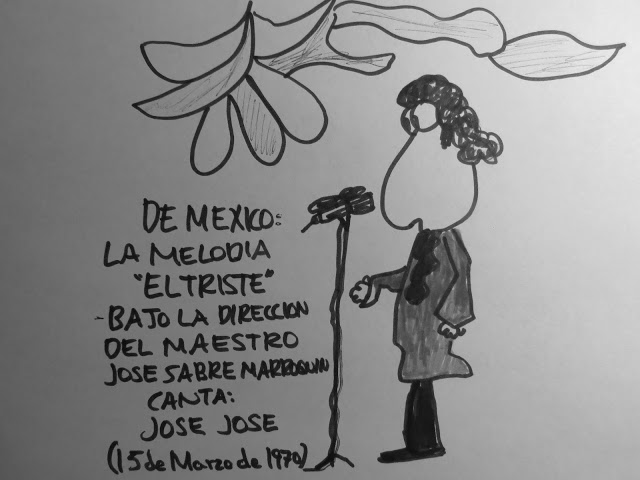 DE MEXICO:
LA MELODIA
"EL TRISTE"
-BAJO LA DIRECCION
DEL MAESTRO
JOSE SABRE MARROQUIN
CANTA:
JOSE JOSE
(15 de Marzo de 1970)